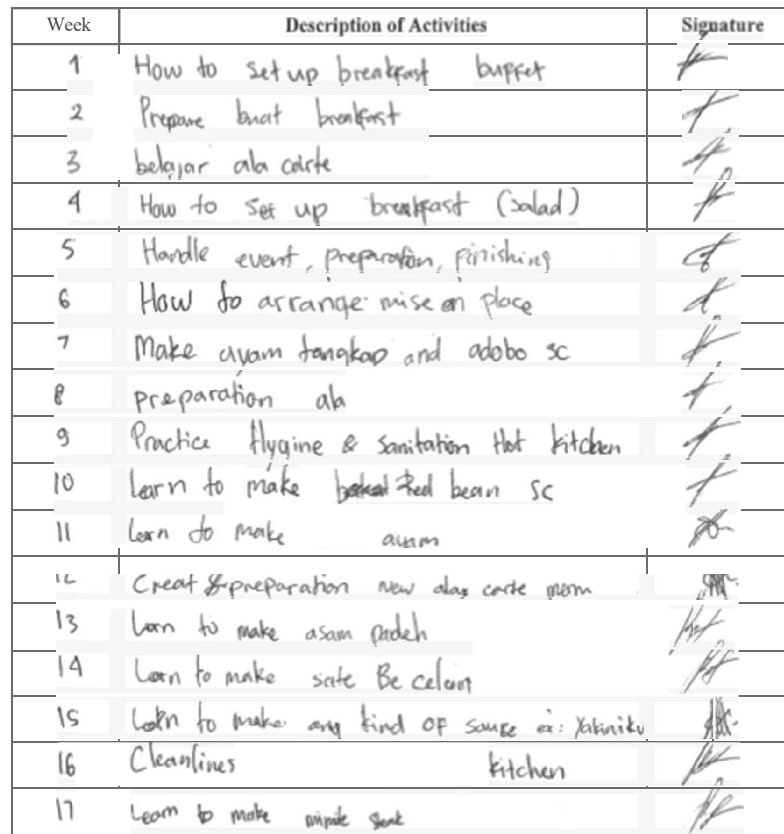 Week Description of Activities Signature
1 How to set up breakfast buffet
2 Prepare buat breakfast
3 belajar ala carte
4 How to set up breakfast (salad)
5 Handle event, preparation, finishing
6 How to arrange mise en place
7 Make ayam tangkap and adobo sc
8 preparation ala
9 Practice Hygine & sanitation Hot kitchen
10 Learn to make Red bean sc
11 Learn to make ayam
12 Creat & preparation new alas carte menu
13 Learn to make asam padeh
14 Learn to make sate Be
15 Learn to make any kind OF sauce ex: Yakiniku
16 Cleanlines kitchen
17 Learn to make